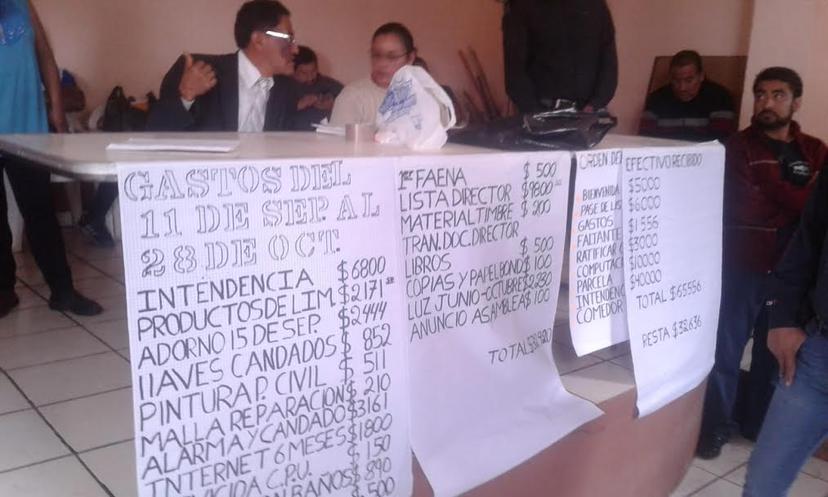 GASTOS DEL
11 DE SEP. AL
28 DE OCT.
INTENDENCIA $6800
PRODUCTOS DE LIM. $2171
ADORNO 15 DE SEP. $2444
LLAVES CANDADOS $852
PINTURA P. CIVIL $511
MALLA REPARACION $210
ALARMA Y CANDADO $3161
INTERNET 6 MESES $1800
$150
BAÑOS $890
$500
1ER FAENA $500
LISTA DIRECTOR $9800
MATERIAL TIMBRE $200
TRAN. DOC. DIRECTOR
LIBROS $500
COPIAS Y PAPEL BOND $100
LUZ JUNIO-OCTUBRE $2230
ANUNCIO ASAMBLEA $100
TOTAL
ORDEN DEL
BIENVENIDA
PASE DE LIS
GASTOS
FALTANTE
RATIFICAR
COMPUTAC
PARCELA
INTENDENC
COMEDOR
EFECTIVO RECIBIDO
$5000
$6000
$1556
$3000
$10000
$40000
TOTAL $65556
RESTA $32,636